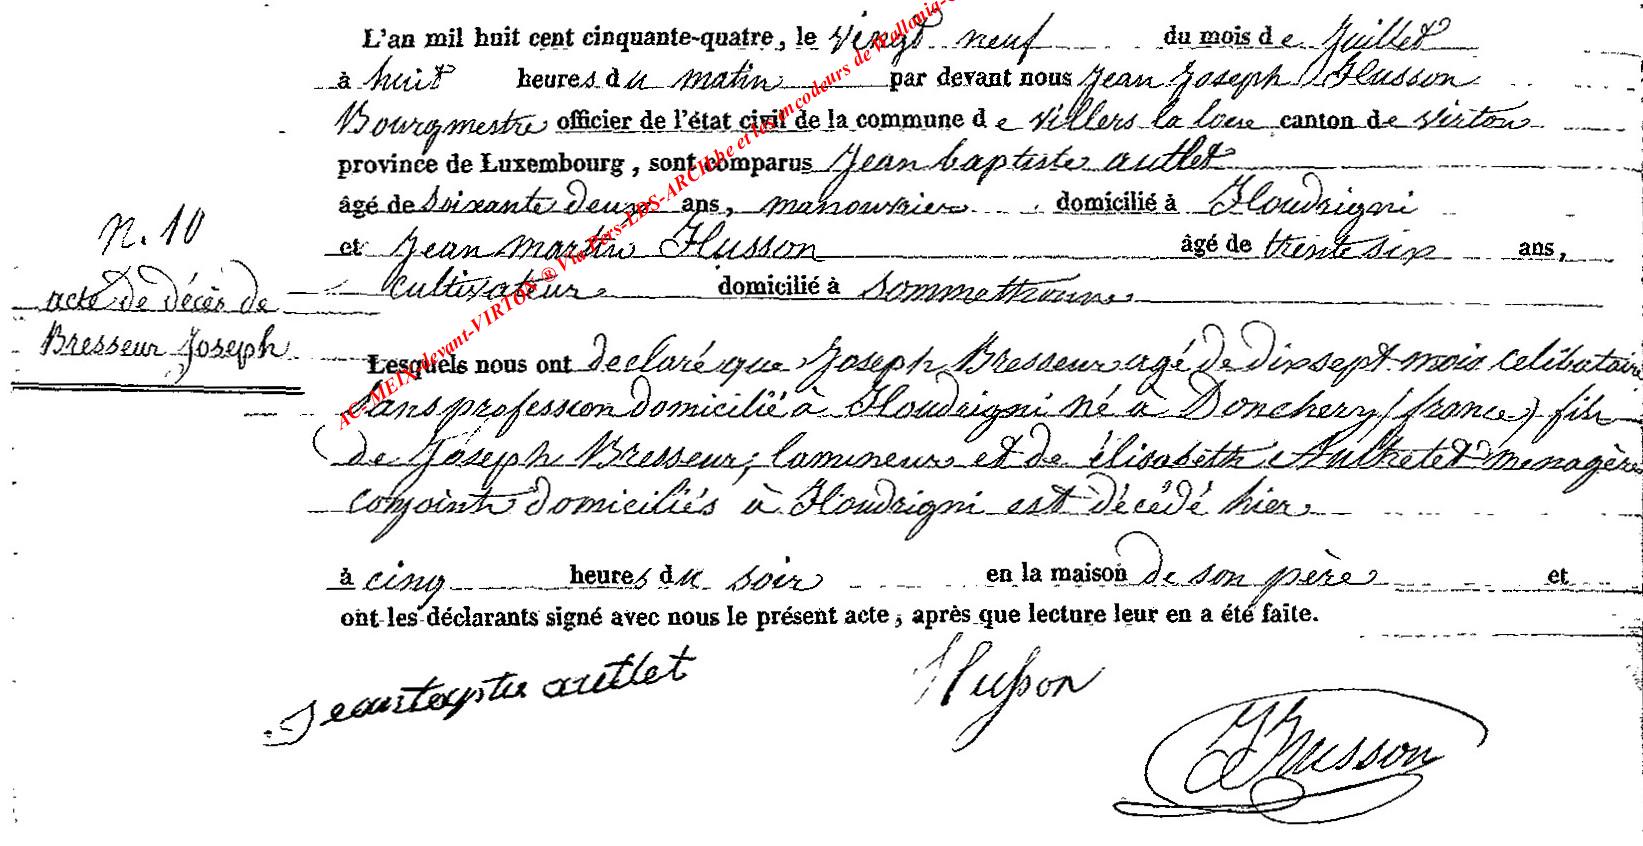 L'an mil huit cent cinquante-quatre, le vingt neuf du mois de Juillet
à huit heures du matin par devant nous Jean Joseph Husson
Bourgmestre officier de l'état civil de la commune de Villers la loue canton de Virton
province de Luxembourg, sont comparus Jean baptiste autlet
âgé de soixante deux ans, manouvrier domicilié à Houdrigni
et Jean martin Husson âgé de trente six ans,
cultivateur domicilié à sommethonne
n. 10
acte de décès de
Bresseur Joseph
Lesquels nous ont declaré que Joseph Bresseur agé de dix sept mois celibataire
sans profession domicilié à Houdrigni né à Donchery (france) fils
de Joseph Bresseur, lamineur et de élisabeth menagère
conjoints domiciliés à Houdrigni est décédé hier
à cinq heures du soir en la maison de son père et
ont les déclarants signé avec nous le présent acte, après que lecture leur en a été faite.
Jean baptiste autlet Husson
JJHusson
AC-MEIX-devant-VIRTON ® Via Pers-LDS-ARCH.be et les encodeurs de Wallonia-